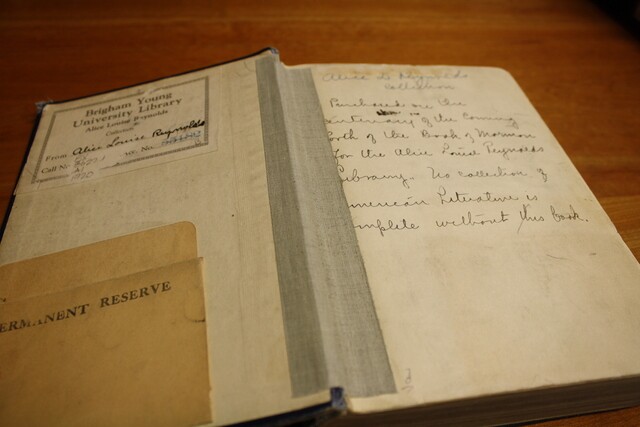 Brigham Young
University Library
Alice Louise Reynolds
Collection
From Alice Louise Reynolds
Call No.
Acc. No.
1920
ERMANENT RESERVE
Alice L. Reynolds
collection
Purchased on the
centenary of the Coming
forth of the Book of Mormon
for the Alice Louise Reynolds
Library. No collection of
merican Literature is
mplete without this book.